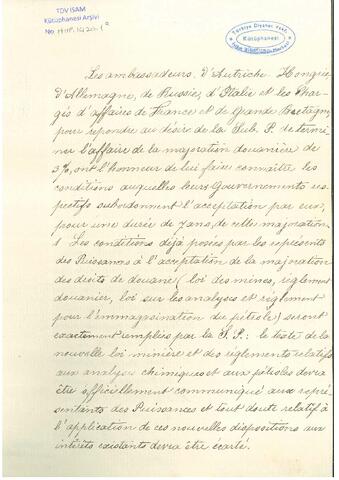 TDV ISAM
Kütüphanesi Arşivi
No HHP.1420.1
Türkiye Diyanet Vakfı
Kütüphanesi
Les ambassadeurs d'Autriche-Hongrie
d'Allemagne, de Russie, d'Italie et les Char-
gés d'affaires de France et de Grande Bretagne,
pour repondre au désir de la Sub. P. de termi-
ner l'affaire de la majoration douanière de
3%, ont l'honneur de lui faire connaître les
conditions auxquelles leurs Gouvernements res-
pectifs subordonnent l'acceptation par eux,
pour une durée de 7 ans, de cette majoration
1 Les conditions déjà posées par les représents
des Puissances à l'acceptation de la majoration
des droits de douane (loi des mines, règlement
douanier, loi sur les analyses et règlement
pour l'emmagasination du pétrole) seront
exactement remplies par la S.P.: le texte de la
nouvelle loi minière et des règlements relatifs
aux analyses chimiques et aux pétroles devra
être officiellement communiqué aux repré-
sentants des Puissances et tout doute relatif à
l'application de ces nouvelles dispositions aux
intérêts existants devra être écarté.